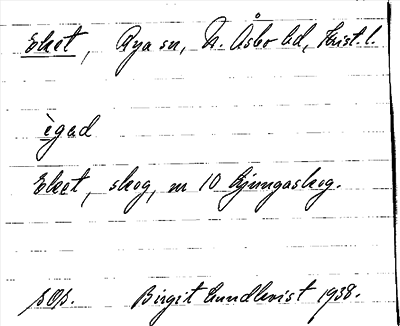 Eket, Rya sn, N. Åsbo hd, Krist. l.
ègad
Eket, skog, nr 10 Ljungaskog.
sOs. Birgit Lundkvist 1938.